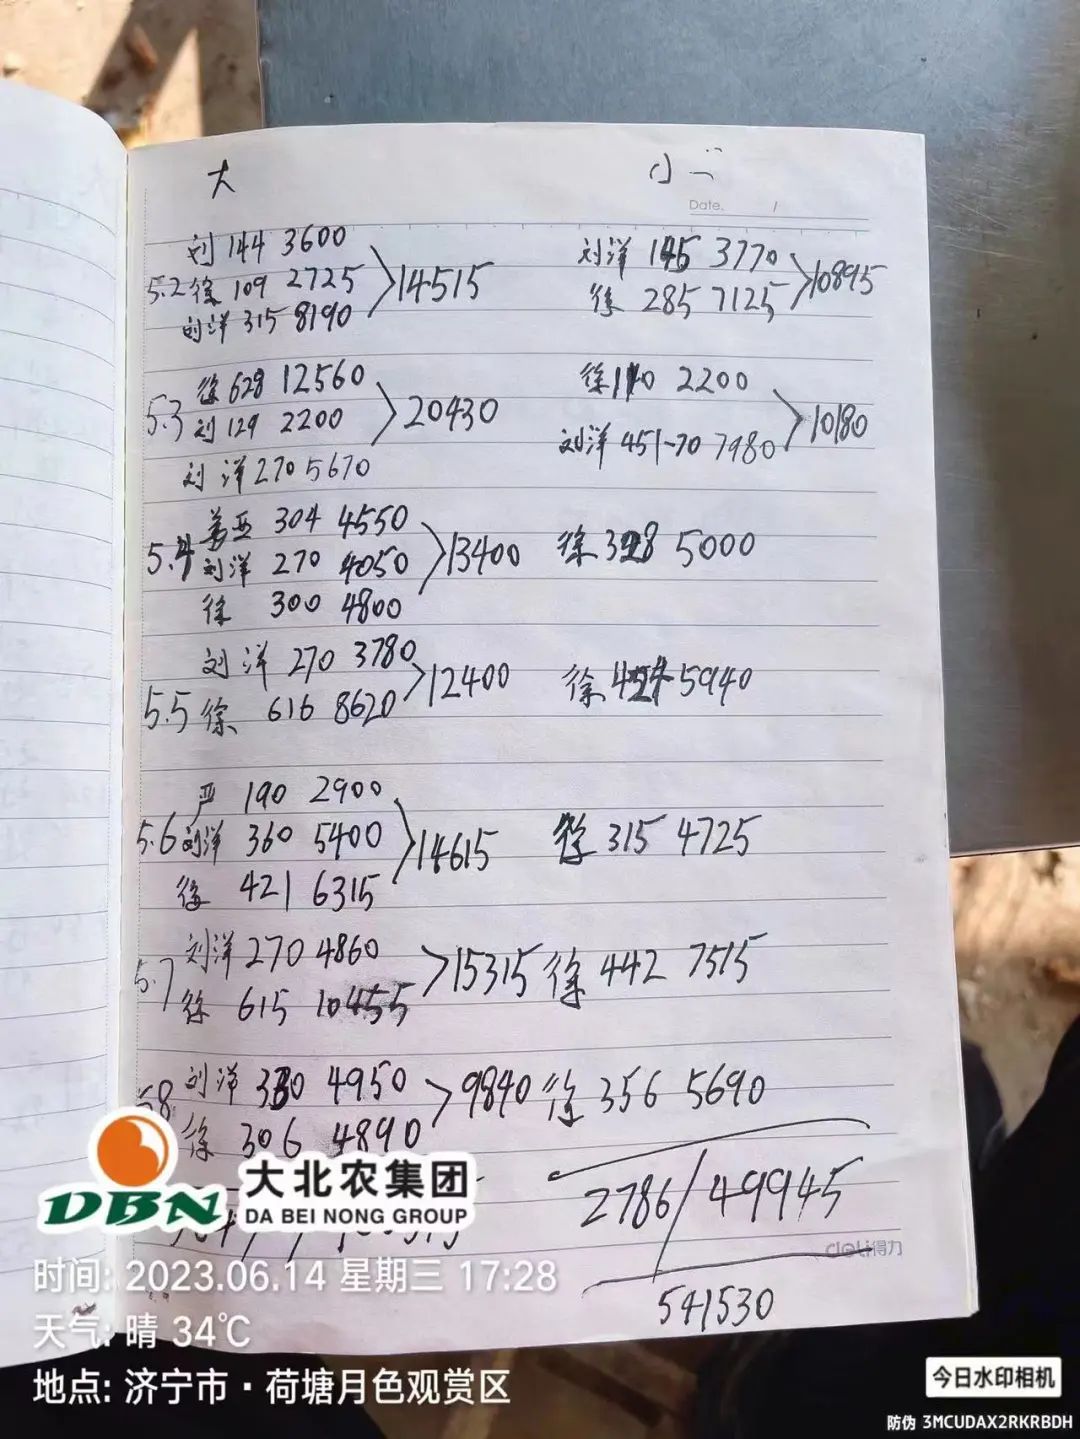 大
小
Date. /
刘 144 3600
5.2 徐 109 2725 > 14515
刘洋 315 8190
刘洋 145 3770
徐 285 7125 > 10895
徐 628 12560
5.3 刘 129 2200 > 20430
刘洋 270 5670
徐 110 2200
刘洋 451-70 7980 > 10180
304 4550
5.4 刘洋 270 4050 > 13400
徐 300 4800
徐 328 5000
刘洋 270 3780
5.5 徐 616 8620 > 12400
徐 424 5940
严 190 2900
5.6 刘洋 360 5400 > 14615
徐 421 6315
徐 315 4725
刘洋 270 4860
5.7 徐 615 10455 > 15315
徐 442 7515
刘洋 330 4950
5.8 徐 306 4890 > 9840
徐 356 5690
2786/49945
541530
deli得力
DBN 大北农集团
DA BEI NONG GROUP
时间: 2023.06.14 星期三 17:28
天气: 晴 34℃
地点: 济宁市·荷塘月色观赏区
今日水印相机
防伪 3MCUDAX2RKRBDH